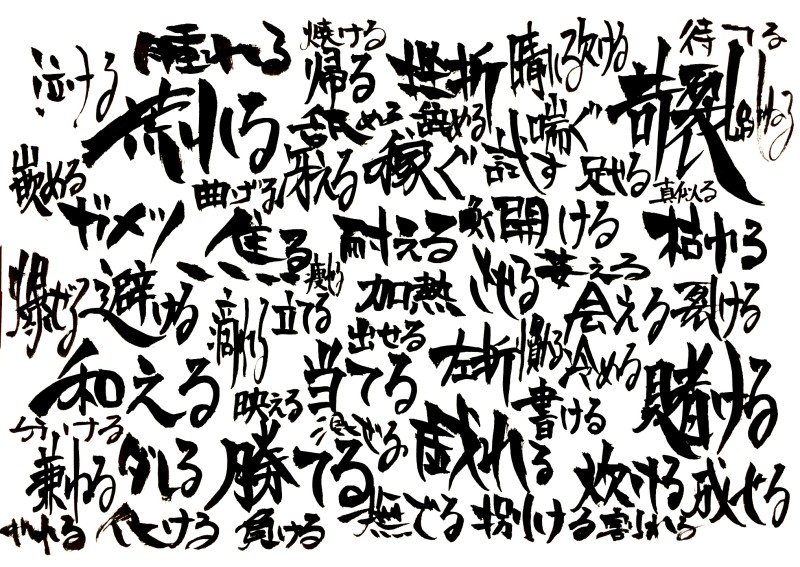 泣ける
腫れる
焼ける
帰る
挫折
晴れる
欠ける
待てる
荒れる
舐める
喘ぐ
奇裂
嵌める
曲げる
冴える
稼ぐ
試す
足せる
真似る
ガメツ
焦る
耐える
開ける
枯れる
爆ぜる
避ける
立てる
加熱
萎える
会える
裂ける
出せる
和える
映える
当てる
左折
冷める
書ける
賭ける
分ける
兼ねる
ダレる
勝てる
戯れる
炊ける
成せる
化ける
負ける
撫でる
捌ける
割れる